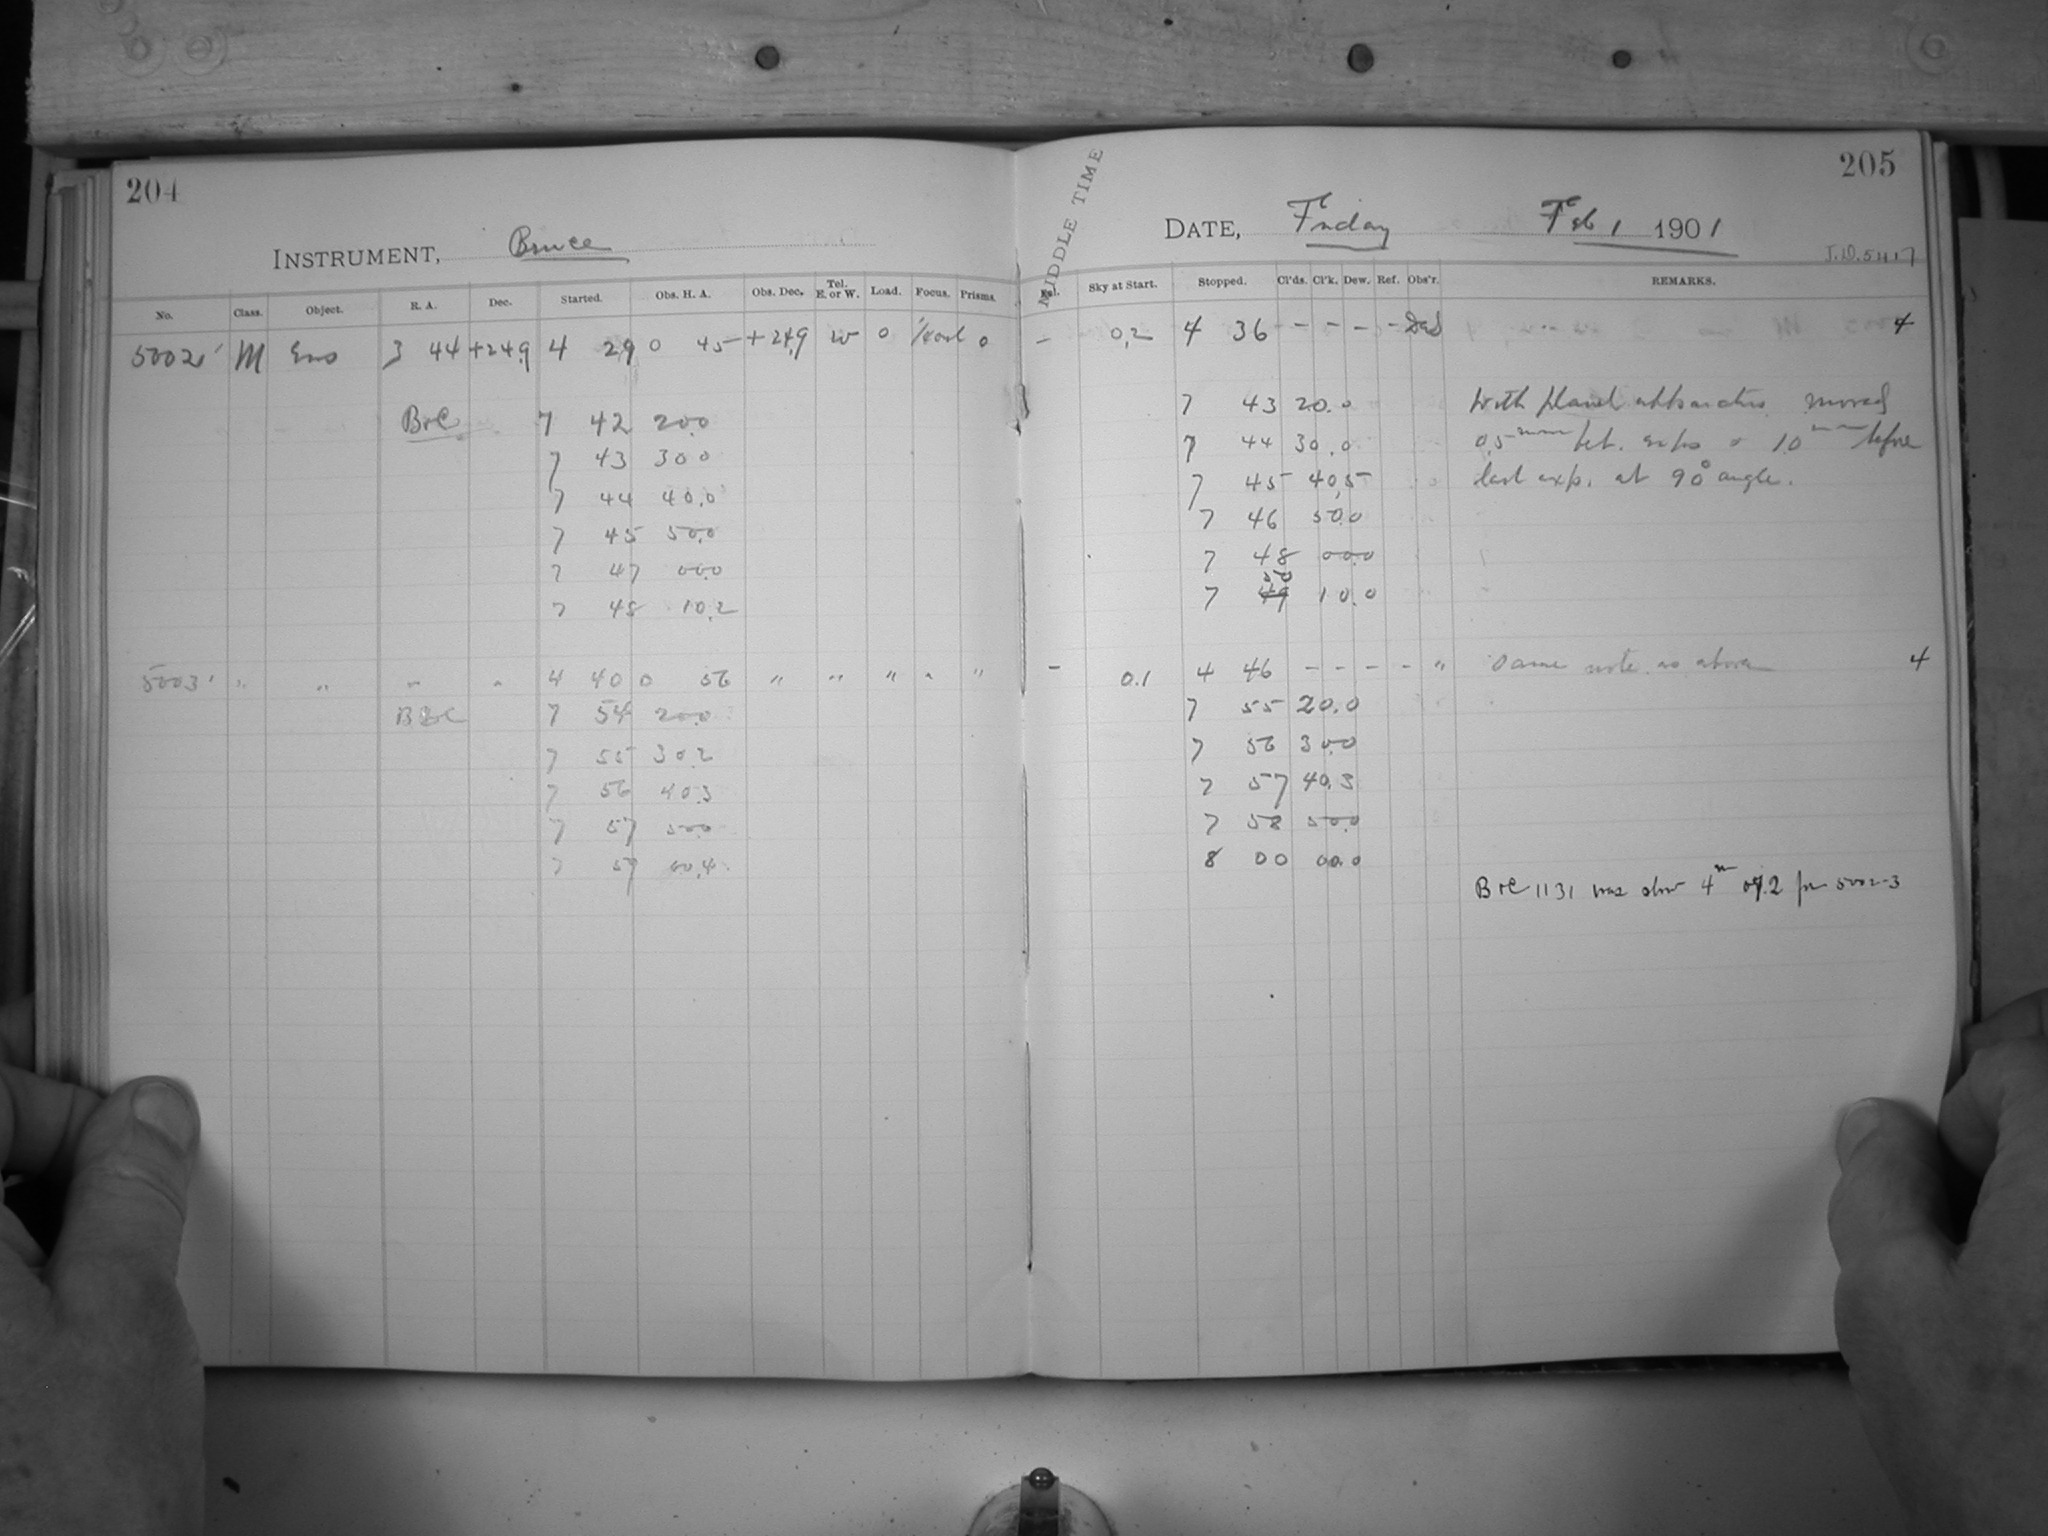 204
INSTRUMENT, Bruce
No. Class. Object. R. A. Dec. Started. Obs. H. A. Obs. Dec. Tel. E. or W. Load. Focus. Prisms.
5002 M Eros 3 44 +24.9 4 29 0 45 +24.9 W 0 0
B & C 7 42 20.0
7 43 30.0
7 44 40.0
7 45 50.0
7 47 00.0
7 48 10.2
5003 " " " " 4 40 0 56 " " " " "
7 54 20.0
7 55 30.2
7 56 40.3
7 57 50.0
7 59 00.4
205
MIDDLE TIME
DATE, Friday Feb 1 1901
J.D. 5417
Sky at Start. Stopped. Cl'ds. Cl'k. Dew. Ref. Obs'r. REMARKS.
- 0.2 4 36 - - - - 4
7 43 20.0 With planet apparatus moved
7 44 30.0 0.5 mm bet. exps & 1.0 mm before
7 45 40.5 last exp. at 90° angle.
7 46 50.0
7 48 00.0
50
7 49 10.0
- 0.1 4 46 - - - - " Same note as above 4
7 55 20.0
7 56 30.0
7 57 40.3
7 58 50.0
8 00 00.0
B & C 1131 was slow 4 m for 5002-3